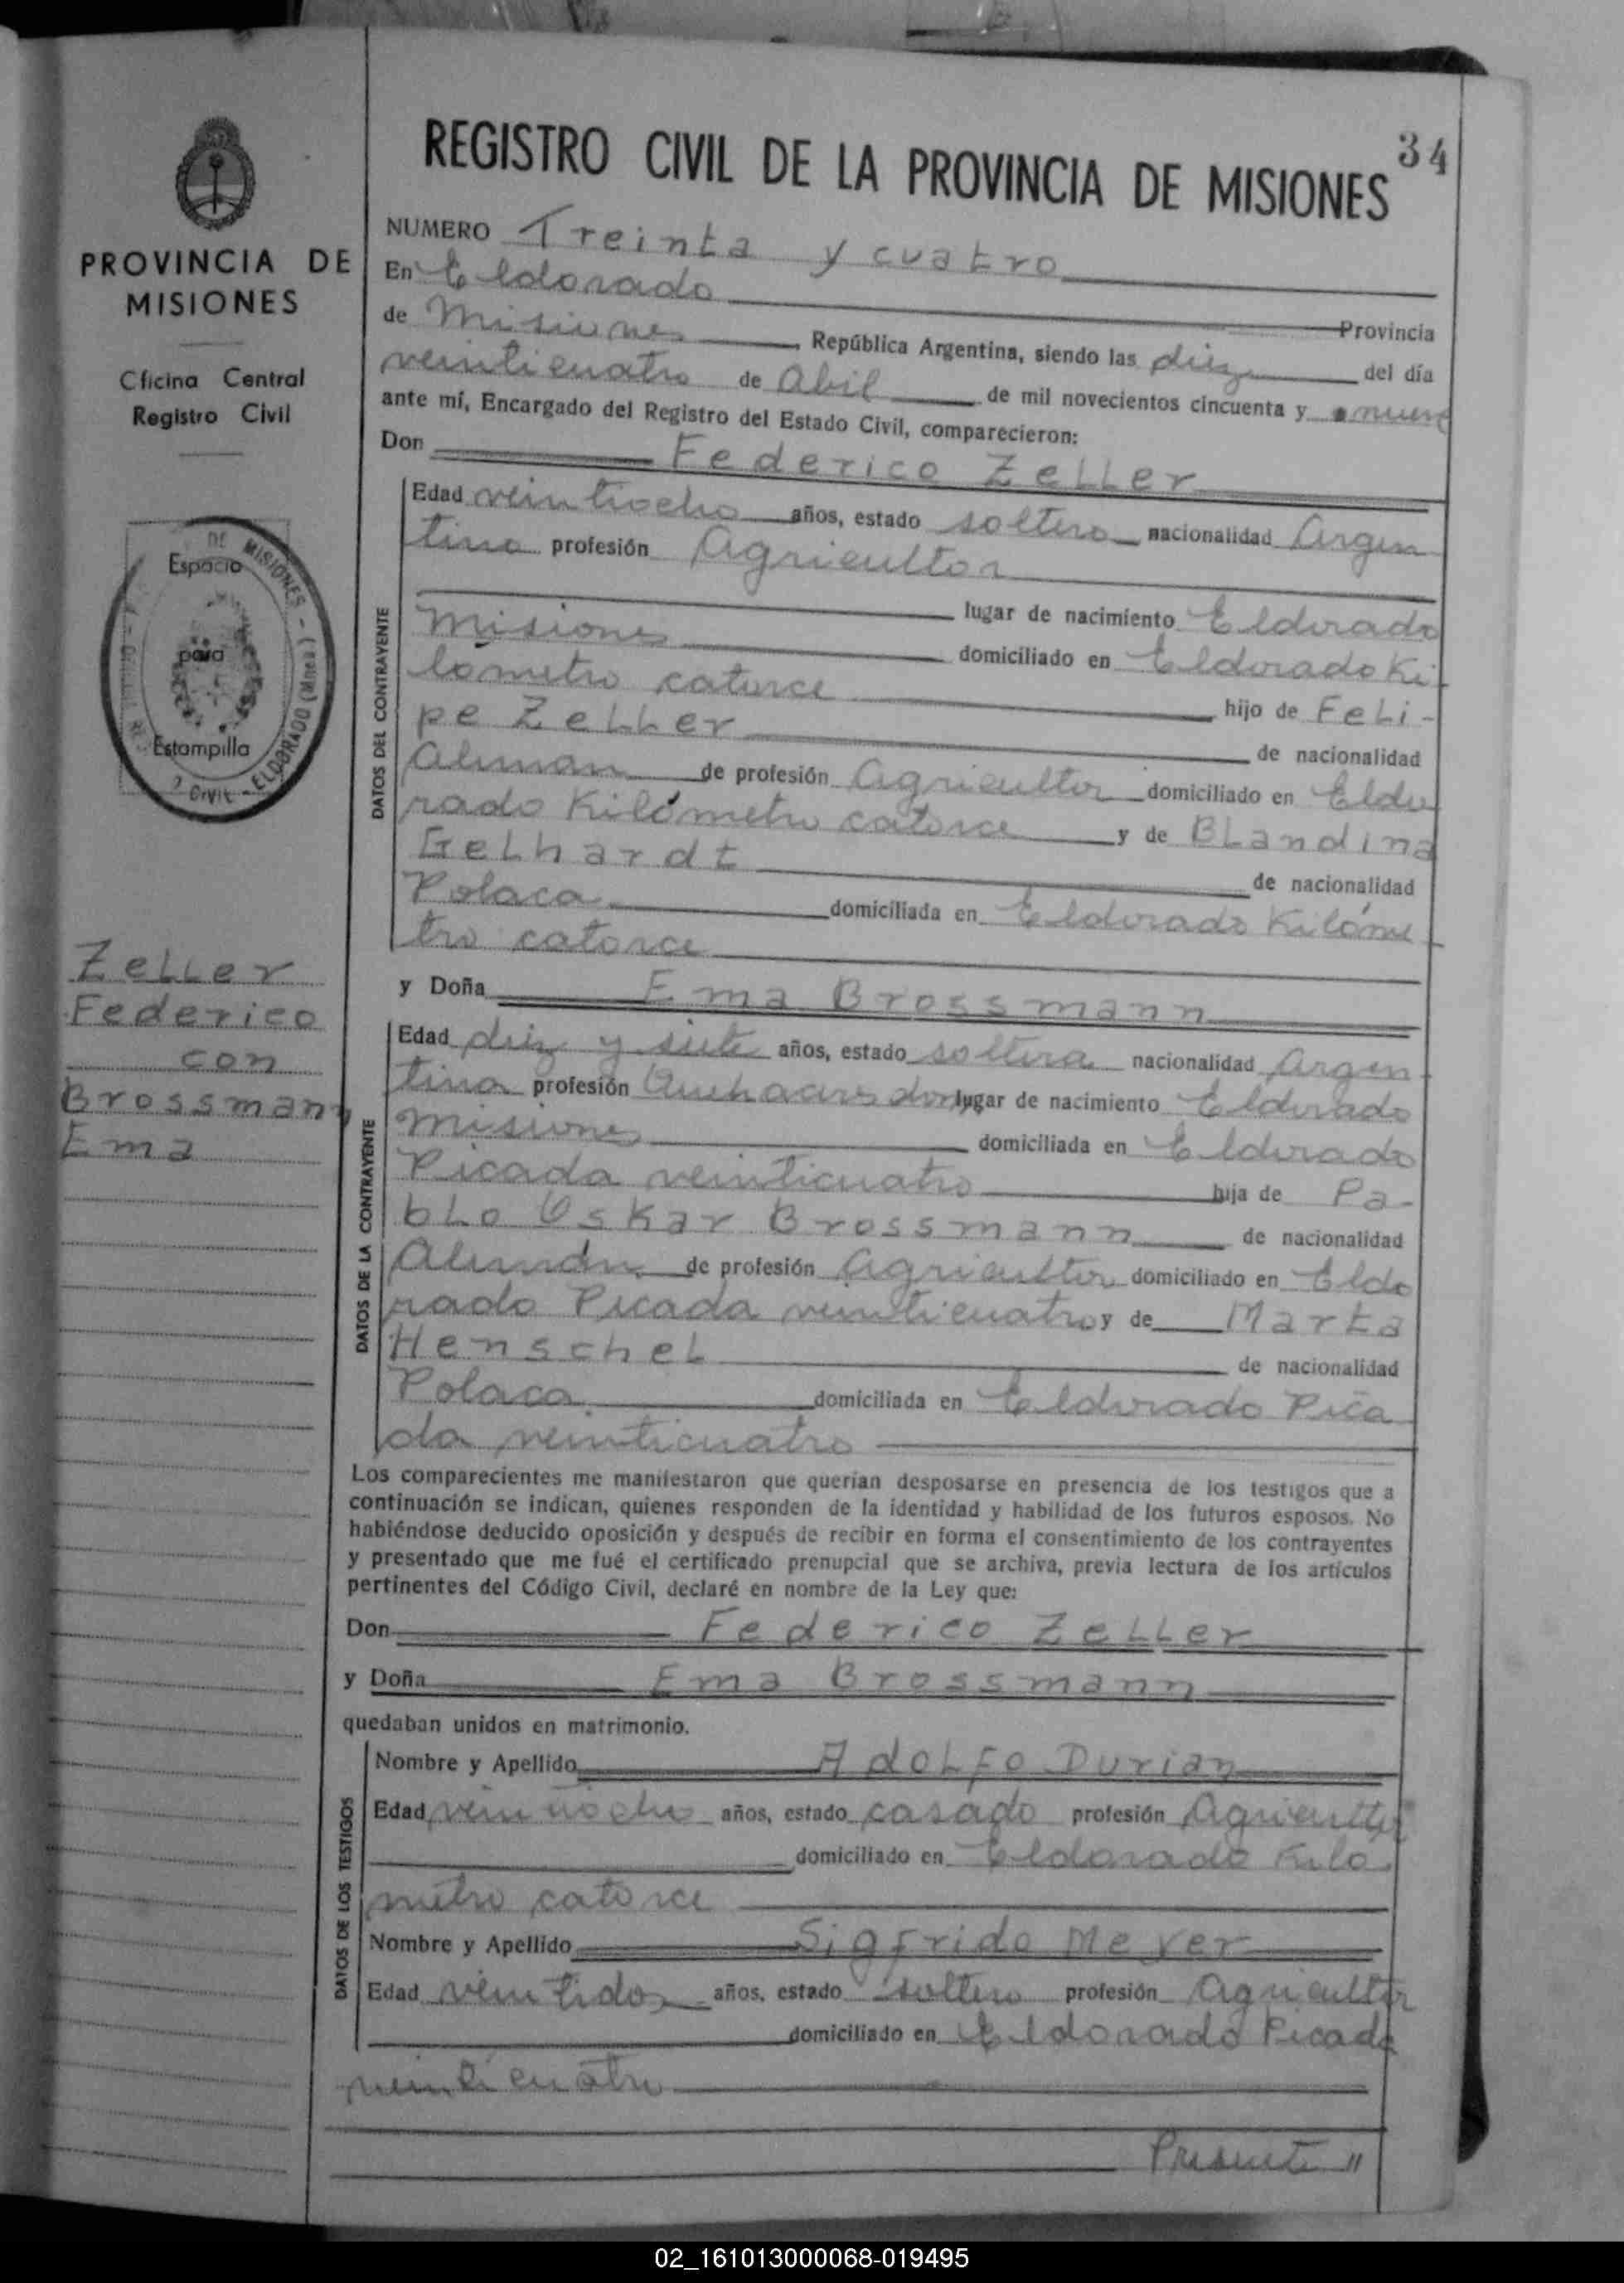 34
REGISTRO CIVIL DE LA PROVINCIA DE MISIONES
PROVINCIA DE
MISIONES
Oficina Central
Registro Civil
DE MISIONES
Espacio
para
Estampilla
ELDORADO (Mnes.)
Civil
Zeller
Federico
con
Brossmann
Ema
NUMERO Treinta y cuatro
En Eldorado Provincia
de Misiones República Argentina, siendo las diez del día
veinticuatro de Abil de mil novecientos cincuenta y nueve
ante mí, Encargado del Registro del Estado Civil, comparecieron:
Don Federico Zeller
DATOS DEL CONTRAYENTE
Edad veintiocho años, estado soltero nacionalidad Argen
tino profesión Agricultor
lugar de nacimiento Eldorado
Misiones domiciliado en Eldorado Ki
lómetro catorce hijo de Feli-
pe Zeller de nacionalidad
Aleman de profesión Agricultor domiciliado en Eldo
rado Kilómetro catorce y de Blandina
Gelhardt de nacionalidad
Polaca domiciliada en Eldorado Kilóme
tro catorce
y Doña Ema Brossmann
DATOS DE LA CONTRAYENTE
Edad diez y siete años, estado soltera nacionalidad Argen
tina profesión lugar de nacimiento Eldorado
Misiones domiciliada en Eldorado
Picada veinticuatro hija de Pa-
blo Oskar Brossmann de nacionalidad
Alemán de profesión Agricultor domiciliado en Eldo
rado Picada veinticuatro y de Marta
Henschel de nacionalidad
Polaca domiciliada en Eldorado Pica
da veinticuatro
Los comparecientes me manifestaron que querían desposarse en presencia de los testigos que a
continuación se indican, quienes responden de la identidad y habilidad de los futuros esposos. No
habiéndose deducido oposición y después de recibir en forma el consentimiento de los contrayentes
y presentado que me fué el certificado prenupcial que se archiva, previa lectura de los artículos
pertinentes del Código Civil, declaré en nombre de la Ley que:
Don Federico Zeller
y Doña Ema Brossmann
quedaban unidos en matrimonio.
DATOS DE LOS TESTIGOS
Nombre y Apellido Adolfo Durian
Edad veintiocho años, estado casado profesión Agricultor
domiciliado en Eldorado Kilo
metro catorce
Nombre y Apellido Sigfrido Meyer
Edad veintidos años, estado soltero profesión Agricultor
domiciliado en Eldorado Picada
veinticuatro
Presente "
02_161013000068-019495